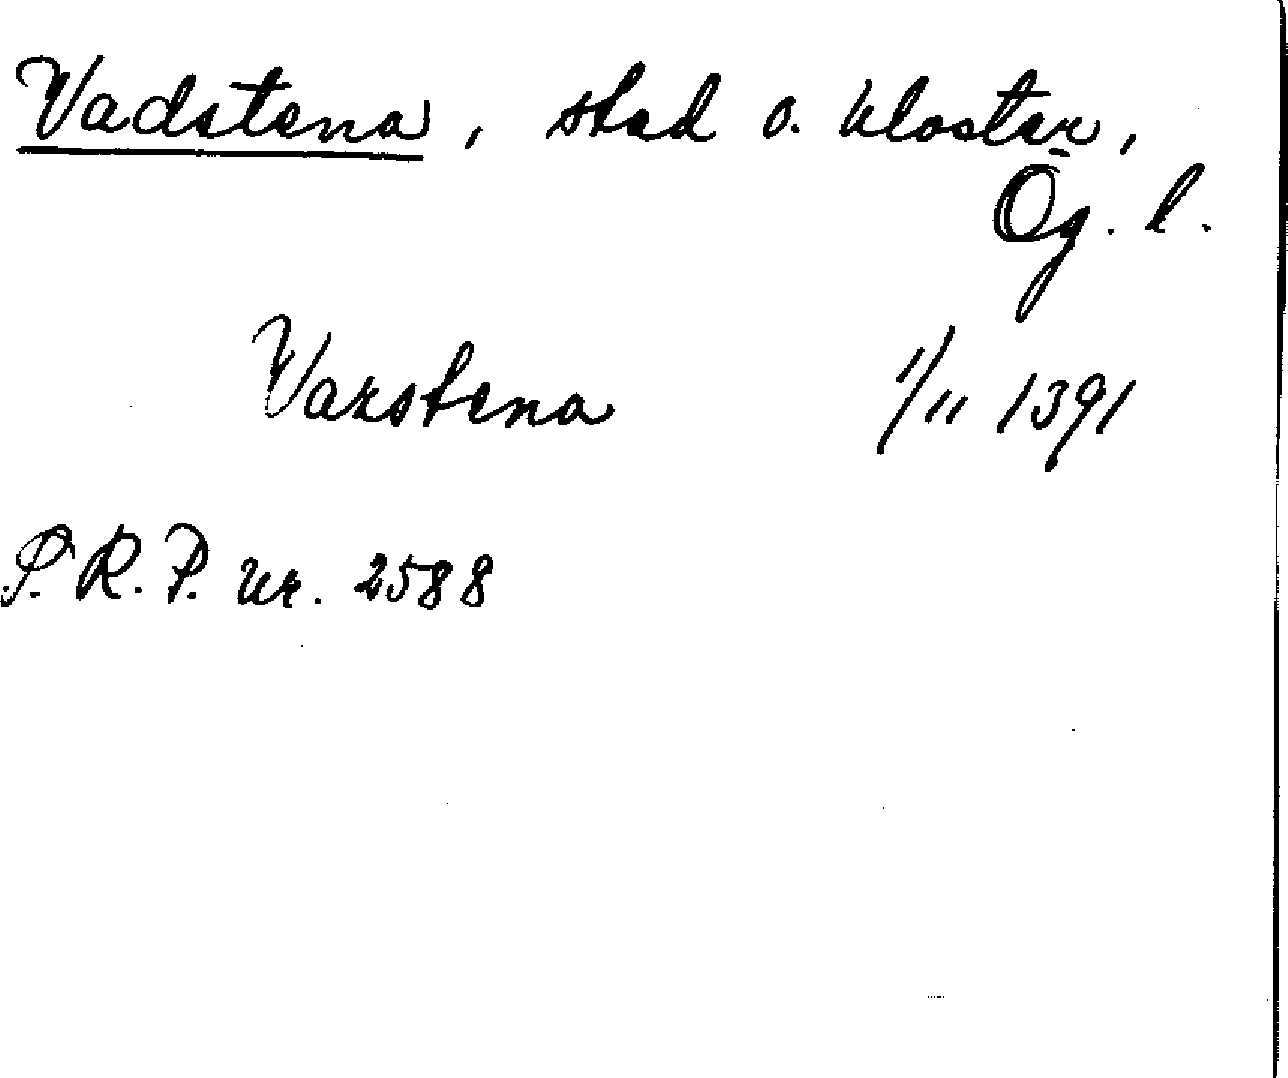 Vadstena, stad o. kloster,
Ög. l.
Varstena 1/11 1391
S.R.P. nr. 2588